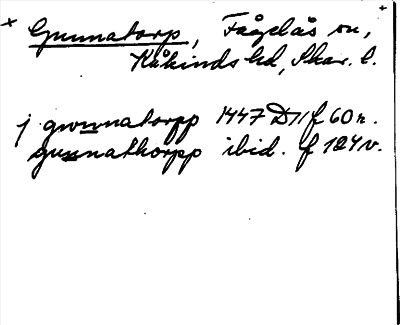 × Gunnatorp, Fågelås sn,
Kåkinds hd, Skar. l.
j gwnnatorpp 1447 D11 f 60 r.
gunnathorpp ibid. f 124 v.